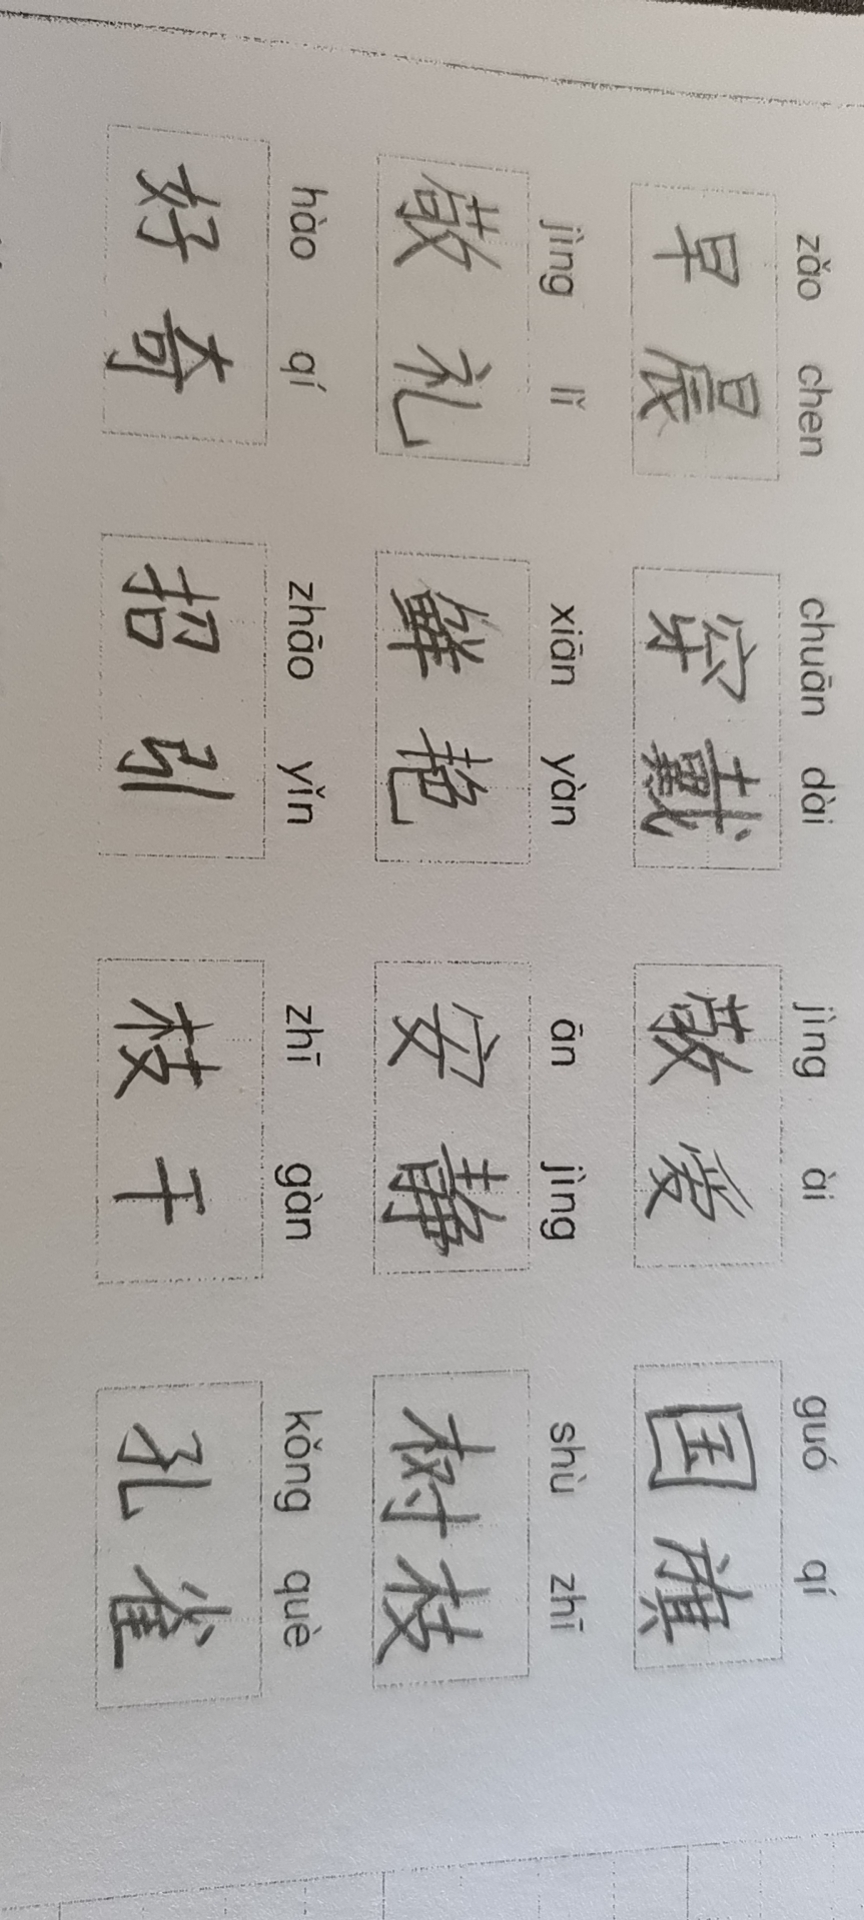 zǎo chen chuān dài jìng ài guó qí
早晨 穿戴 敬爱 国旗
jìng lǐ xiān yàn ān jìng shù zhī
敬礼 鲜艳 安静 树枝
hào qí zhāo yǐn zhī gàn kǒng què
好奇 招引 枝干 孔雀